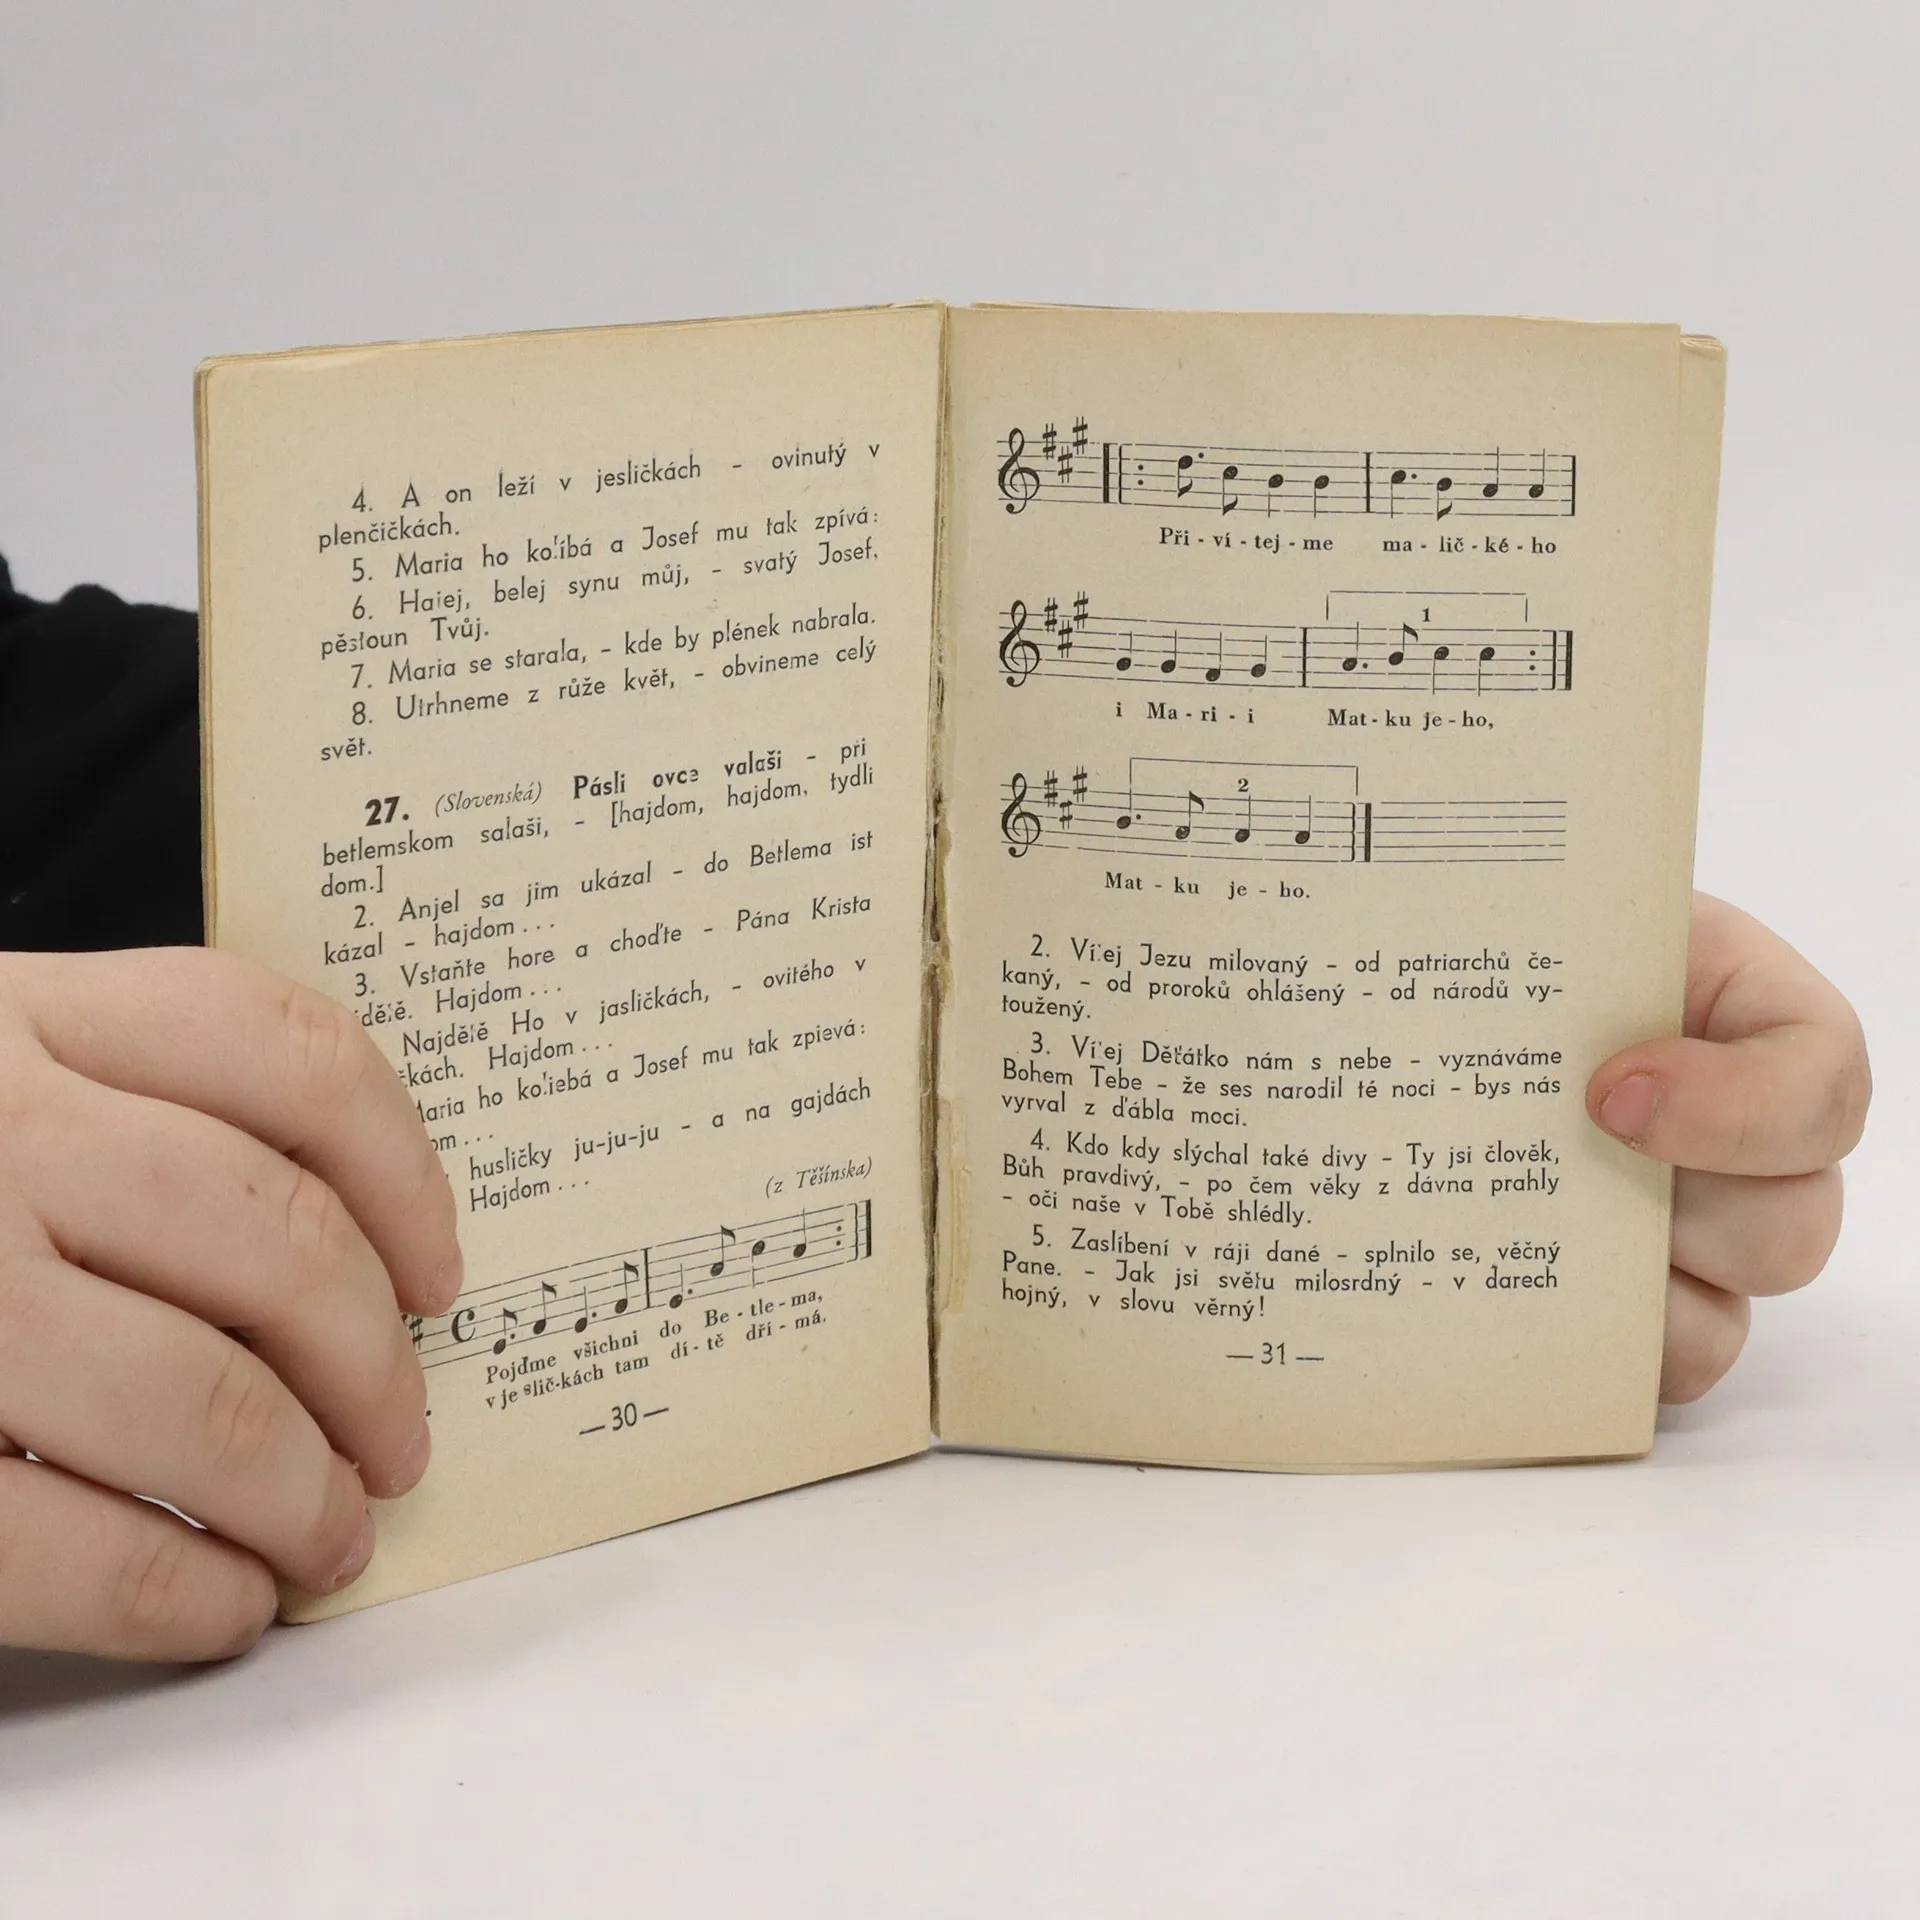 4. A on leží v jesličkách – ovinutý v
plenčičkách.
5. Maria ho kolíbá a Josef mu tak zpívá:
6. Hajej, belej synu můj, – svatý Josef,
pěstoun Tvůj.
7. Maria se starala, – kde by plének nabrala.
8. Utrhneme z růže květ, – obvineme celý
svět.
27. (Slovenská) Pásli ovce valaši – při
betlemskom salaši, – [hajdom, hajdom, tydli
dom.]
2. Anjel sa jim ukázal – do Betlema ist
kázal – hajdom...
3. Vstaňte hore a choďte – Pána Krista
Hajdom...
Najdětě Ho v jasličkách, – ovitého v
Hajdom...
Maria ho koliebá a Josef mu tak zpievá:
husličky ju-ju-ju – a na gajdách
Hajdom...
(z Těšínska)
Pojďme všichni do Be - tle - ma,
v je slič-kách tam dí - tě dří - má.
— 30 —
Při - ví - tej - me ma - lič - ké - ho
1
i Ma - ri - i Mat - ku je - ho,
2
Mat - ku je - ho.
2. Vítej Jezu milovaný – od patriarchů če-
kaný, – od proroků ohlášený – od národů vy-
toužený.
3. Vítej Děťátko nám s nebe – vyznáváme
Bohem Tebe – že ses narodil té noci – bys nás
vyrval z ďábla moci.
4. Kdo kdy slýchal také divy – Ty jsi člověk,
Bůh pravdivý, – po čem věky z dávna prahly
– oči naše v Tobě shlédly.
5. Zaslíbení v ráji dané – splnilo se, věčný
Pane. – Jak jsi světu milosrdný – v darech
hojný, v slovu věrný!
— 31 —